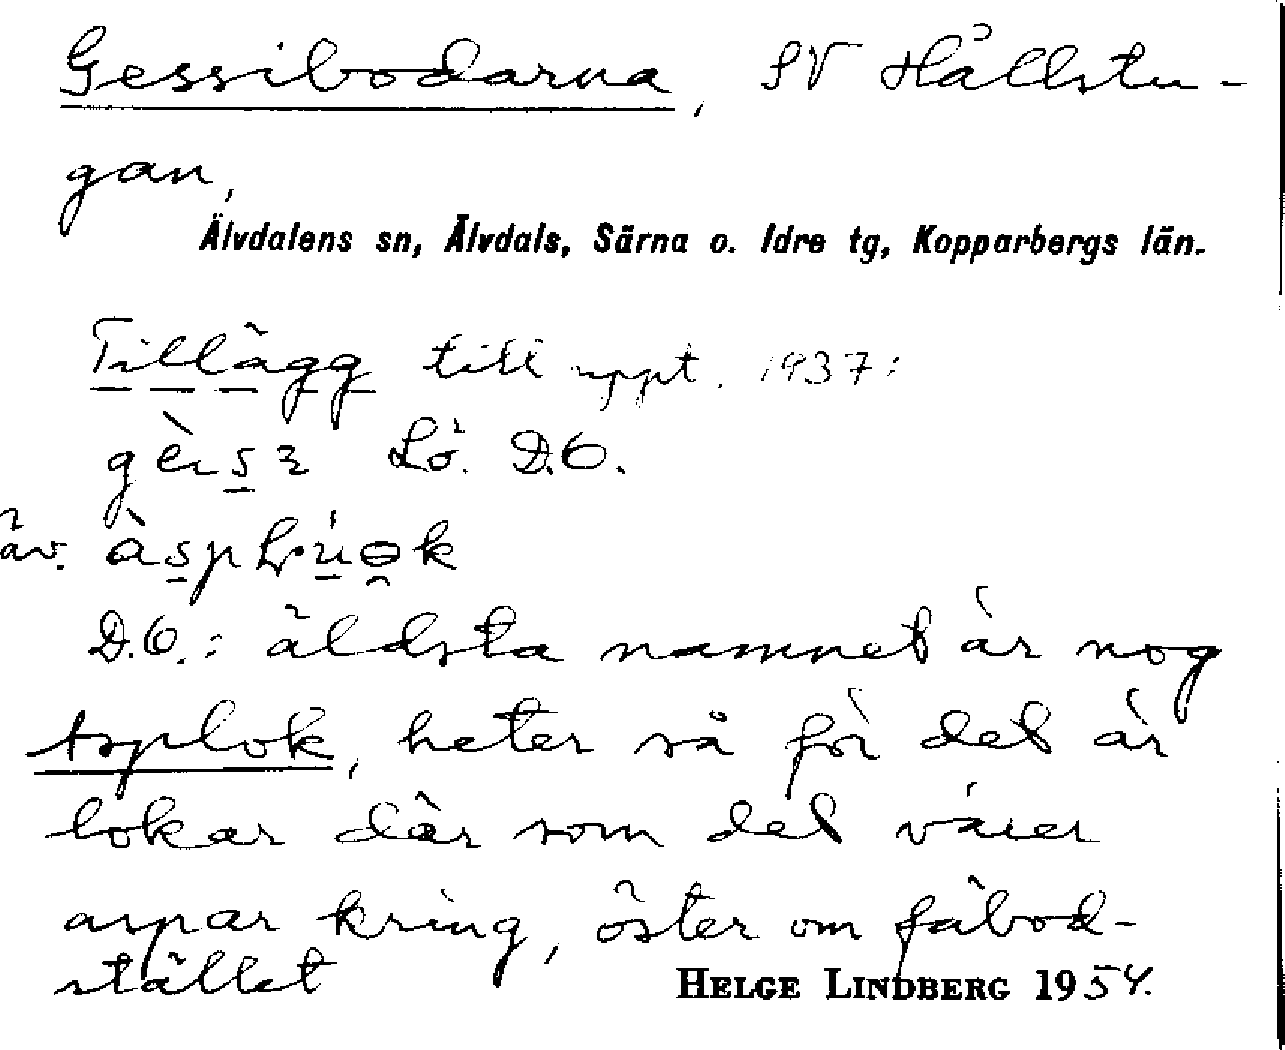 Gessibodarna, SV Hållstu-
gan,
Älvdalens sn, Älvdals, Särna o. Idre tg, Kopparbergs län.
Tillägg till uppt. 1937:
Lö. D.O.
äv.
D.O.: äldsta namnet är nog
Asplok, heter så för det är
lokar där som det växer
aspar kring, öster om fäbod-
stället
HELGE LINDBERG 1954.